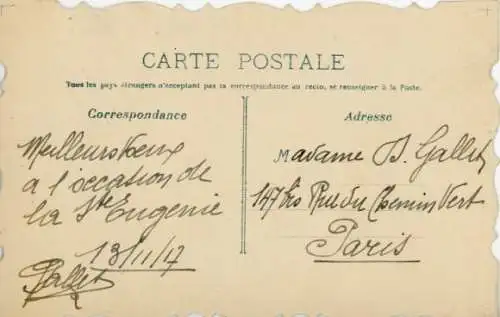 CARTE POSTALE
Tous les pays étrangers n'acceptent pas la correspondance au recto, se renseigner à la Poste.
Correspondance
Meilleurs Vœux
a l'occasion de
la Ste Eugenie
13/11/17
Gallet
Adresse
Madame B. Gallet
147 bis Rue du Chemin Vert
Paris